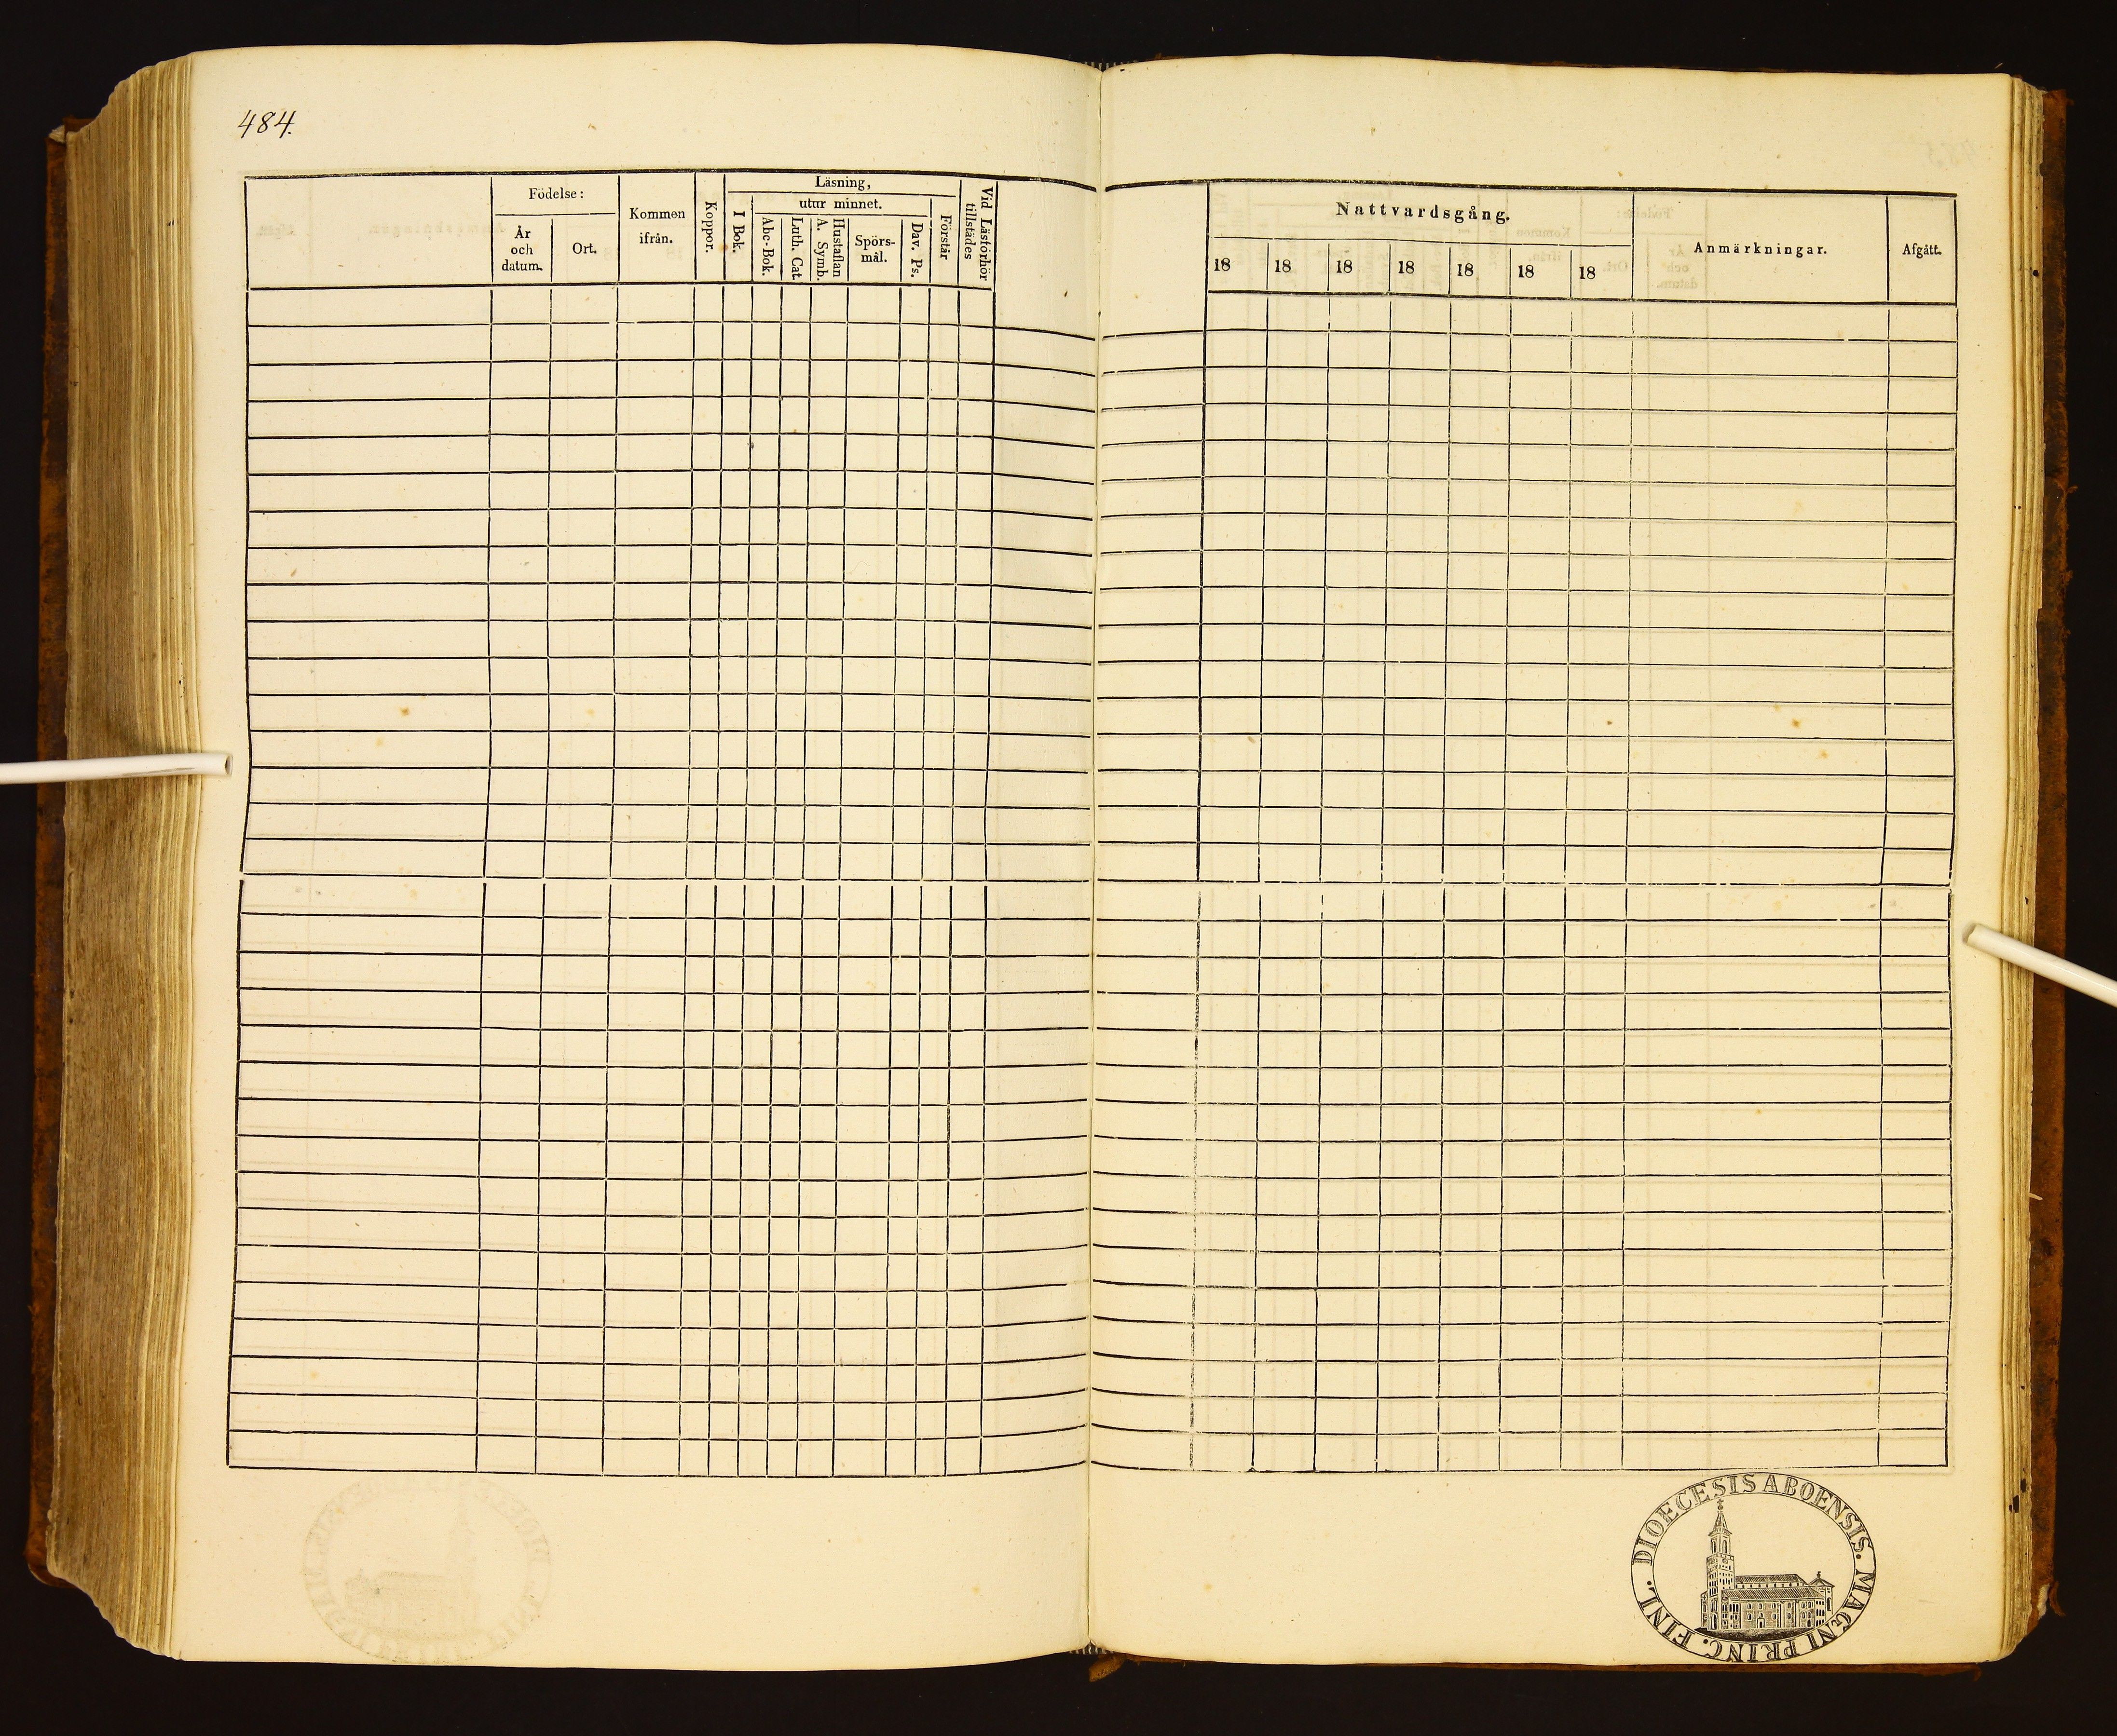 484.
Födelse:
År
och
datum.
Ort.
Kommen
ifrån.
Koppor.
Läsning,
I Bok.
utur minnet.
Abc-Bok.
Luth. Cat.
Hustaflan
A. Symb.
Spörs-
mål.
Dav. Ps.
Förstår
Vid Läsförhör
tillstädes
Nattvardsgång.
18 18 18 18 18 18 18
Anmärkningar.
Afgått.
DIOECESIS ABOENSIS. MAGNI PRINC. FINL.